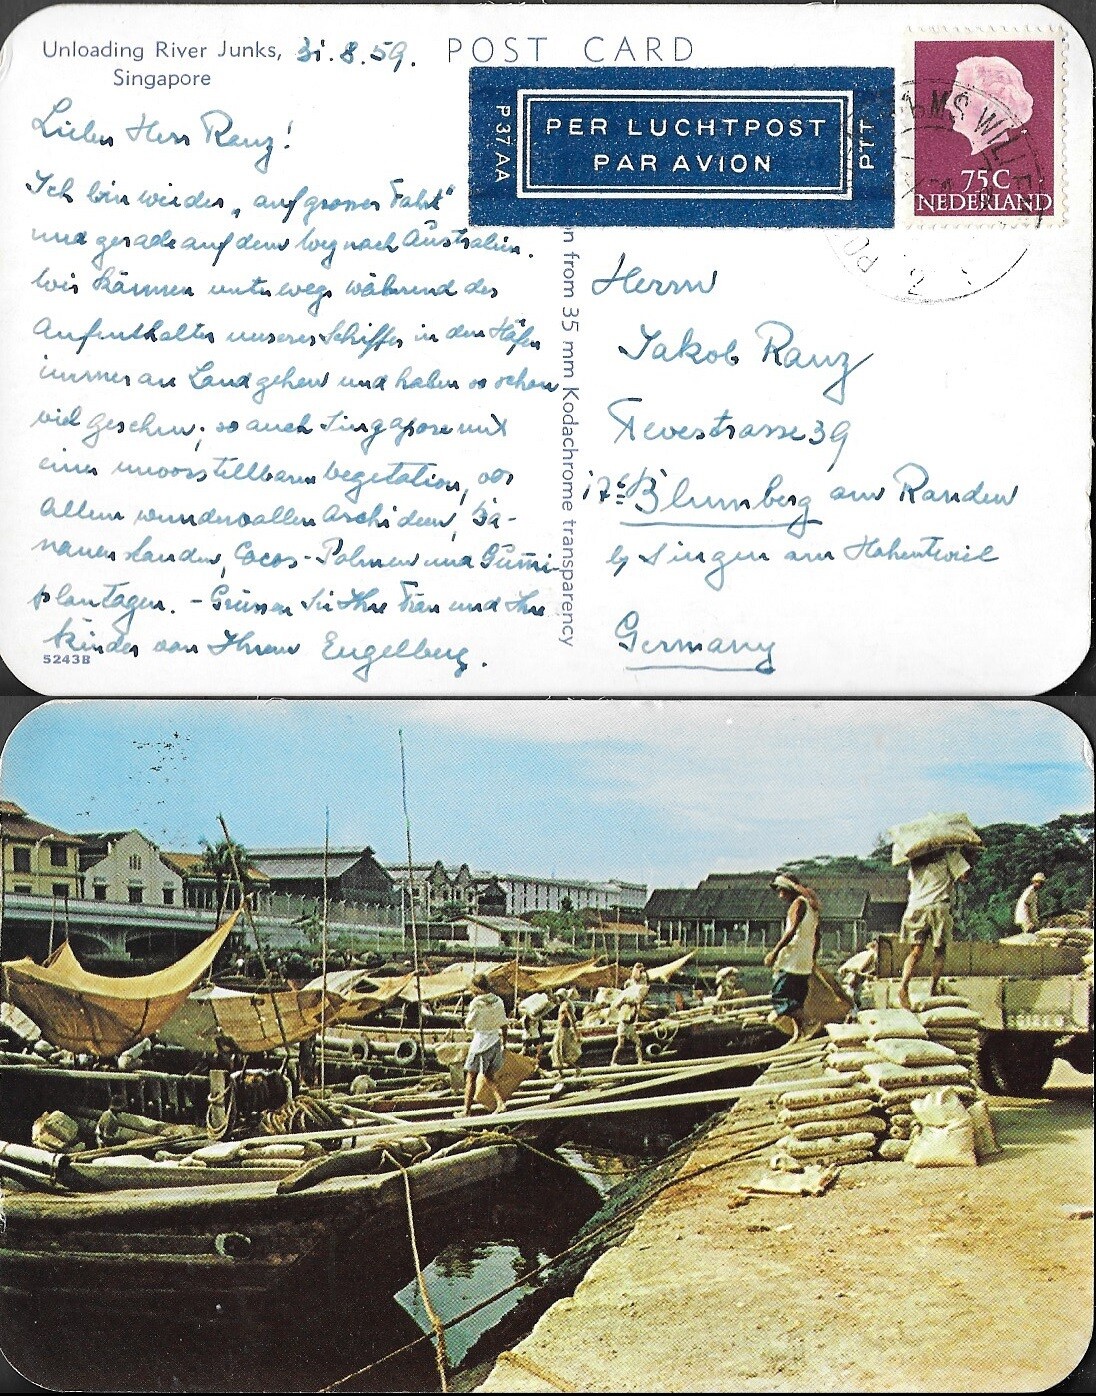 Unloading River Junks,
Singapore
31.8.59.
POST CARD
P 37 AA
PER LUCHTPOST
PAR AVION
PTT
75C
NEDERLAND
Lieber Herr Ranz!
Ich bin wieder „auf grosser Fahrt"
und gerade auf dem Weg nach Australien.
Wir können unterwegs während des
Aufenthaltes unseres Schiffes in den Häfen
immer an Land gehen und haben so schon
viel gesehen; so auch Singapore mit
einer unvorstellbaren Vegetation, vor
Allem wundervollen Orchideen, Ba-
nanenstauden, Cocos-Palmen und Gummi-
plantagen. - Grüssen Sie Ihre Frau und Ihre
Kinder von Ihrem Engelberg.
5243B
n from 35 mm Kodachrome transparency
Herrn
Jakob Ranz
Tevestrasse 39
17c Blumberg am Randen
b/ Singen am Hohentwiel
Germany